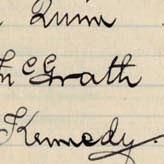 Quinn
McGrath
Kennedy